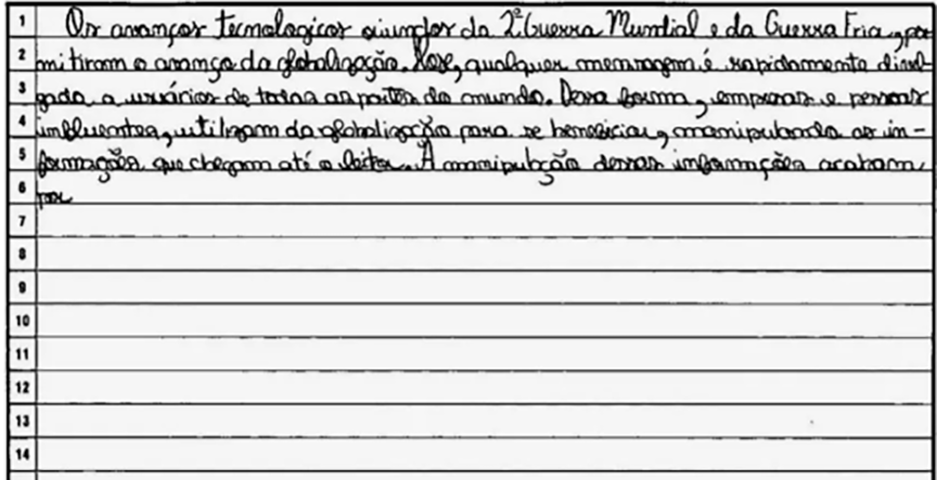 1 Os avanços tecnologicos oriundos da 2ª Guerra Mundial e da Guerra Fria, per
2 mitiram o avanço da globalização. Hoje, qualquer mensagem é rapidamente divul-
3 gada a usuários de todas as partes do mundo. Dessa forma, empresas e pessoas
4 influentes, utilizam da globalização para se beneficiar, manipulando as in-
5 formações que chegam até o leitor. A manipulação dessas informações acabam
6 por
7
8
9
10
11
12
13
14